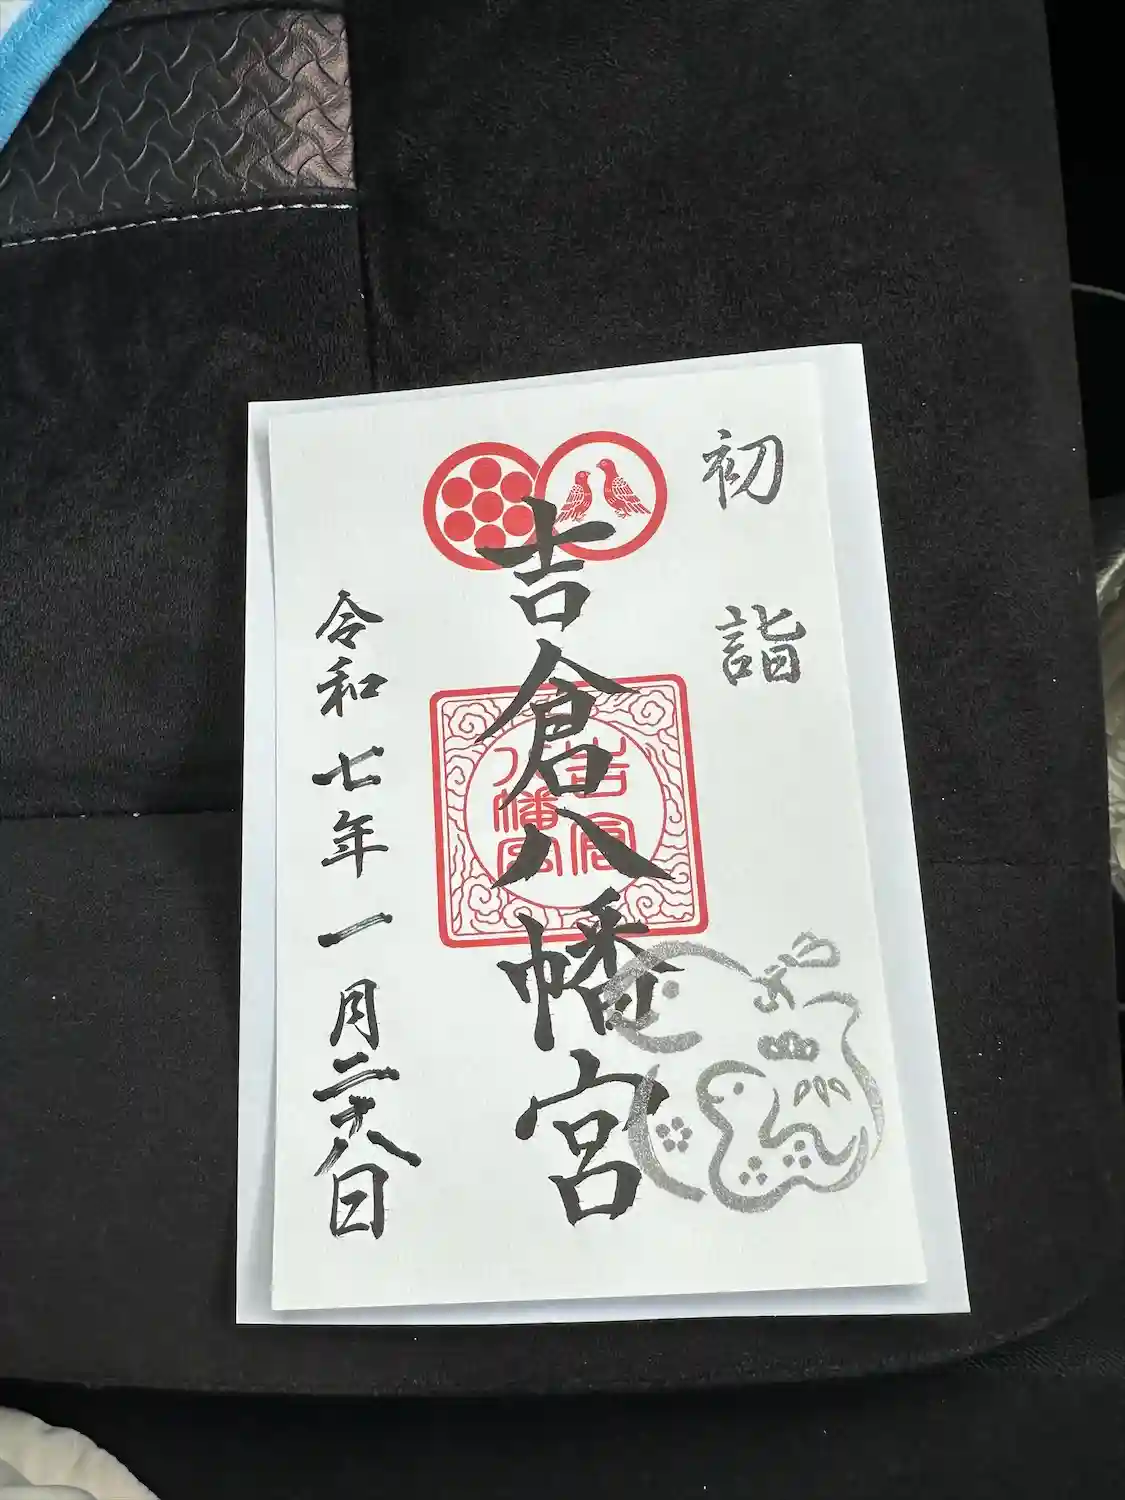 初詣
吉倉八幡宮
吉倉
八幡宮
令和七年一月二十八日